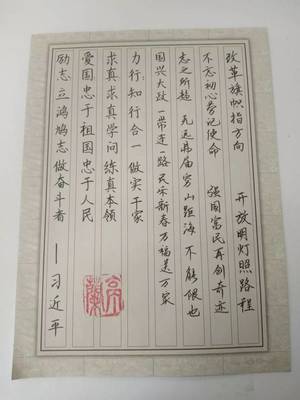 改革旗帜指方向 开放明灯照路程
不忘初心牢记使命 强国富民再创奇迹
志之所趋 无远弗届 穷山距海 不能限也
国兴大政一带连一路 民乐新春万福送万家
力行:知行合一 做实干家
求真求真学问 练真本领
爱国忠于祖国忠于人民
励志立鸿鹄志做奋斗者 — 习近平